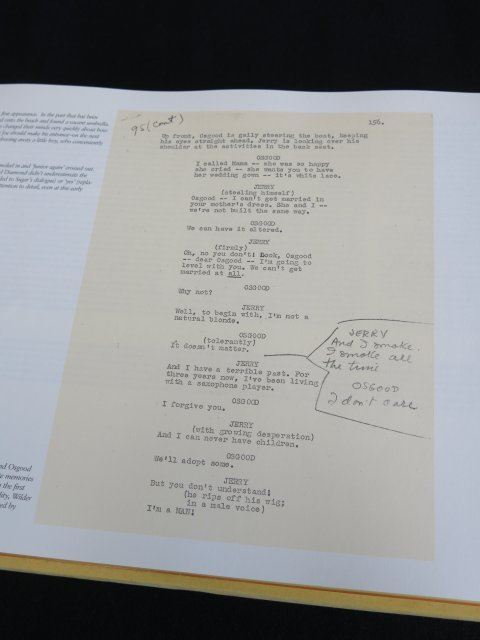 first appearance. In the part that has been
onto the beach and found a vacant umbrella.
changed their minds very quickly about how
Joe should make his entrance—on the next
chasing away a little boy, who conveniently
and 'Junior again' crossed out.
Diamond didn't underestimate the
to Sugar's dialogue) or 'yes' (repla-
attention to detail, even at this early
nd Osgood
memories
the first
Wilder
ed by
95 (cont)
156.
Up front, Osgood is gaily steering the boat, keeping
his eyes straight ahead. Jerry is looking over his
shoulder at the activities in the back seat.
OSGOOD
I called Mama -- she was so happy
she cried -- she wants you to have
her wedding gown -- it's white lace.
JERRY
(steeling himself)
Osgood -- I can't get married in
your mother's dress. She and I --
we're not built the same way.
OSGOOD
We can have it altered.
JERRY
(firmly)
Oh, no you don't! Look, Osgood
-- dear Osgood -- I'm going to
level with you. We can't get
married at all.
OSGOOD
Why not?
JERRY
Well, to begin with, I'm not a
natural blonde.
OSGOOD
(tolerantly)
It doesn't matter.
JERRY
And I smoke.
I smoke all
the time
OSGOOD
I don't care
JERRY
And I have a terrible past. For
three years now, I've been living
with a saxophone player.
OSGOOD
I forgive you.
JERRY
(with growing desperation)
And I can never have children.
OSGOOD
We'll adopt some.
JERRY
But you don't understand!
(he rips off his wig;
in a male voice)
I'm a MAN!